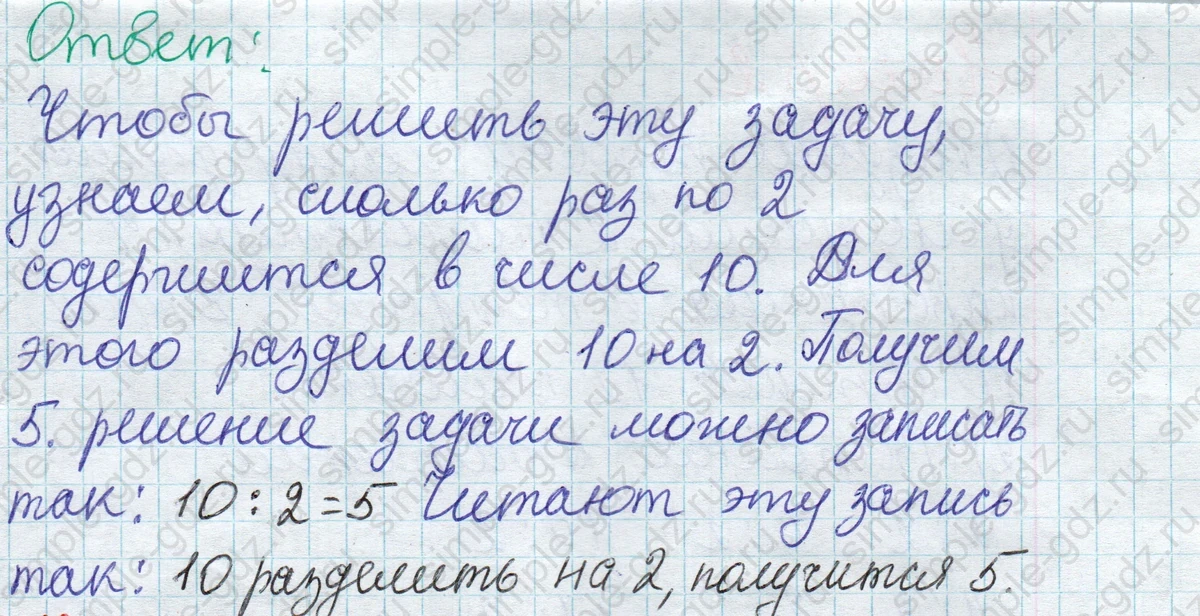 Ответ:
Чтобы решить эту задачу,
узнаем, сколько раз по 2
содержится в числе 10. Для
этого разделим 10 на 2. Получим
5. решение задачи можно записать
так: 10 : 2 = 5 Читают эту запись
так: 10 разделить на 2, получится 5.
simple-gdz.ru